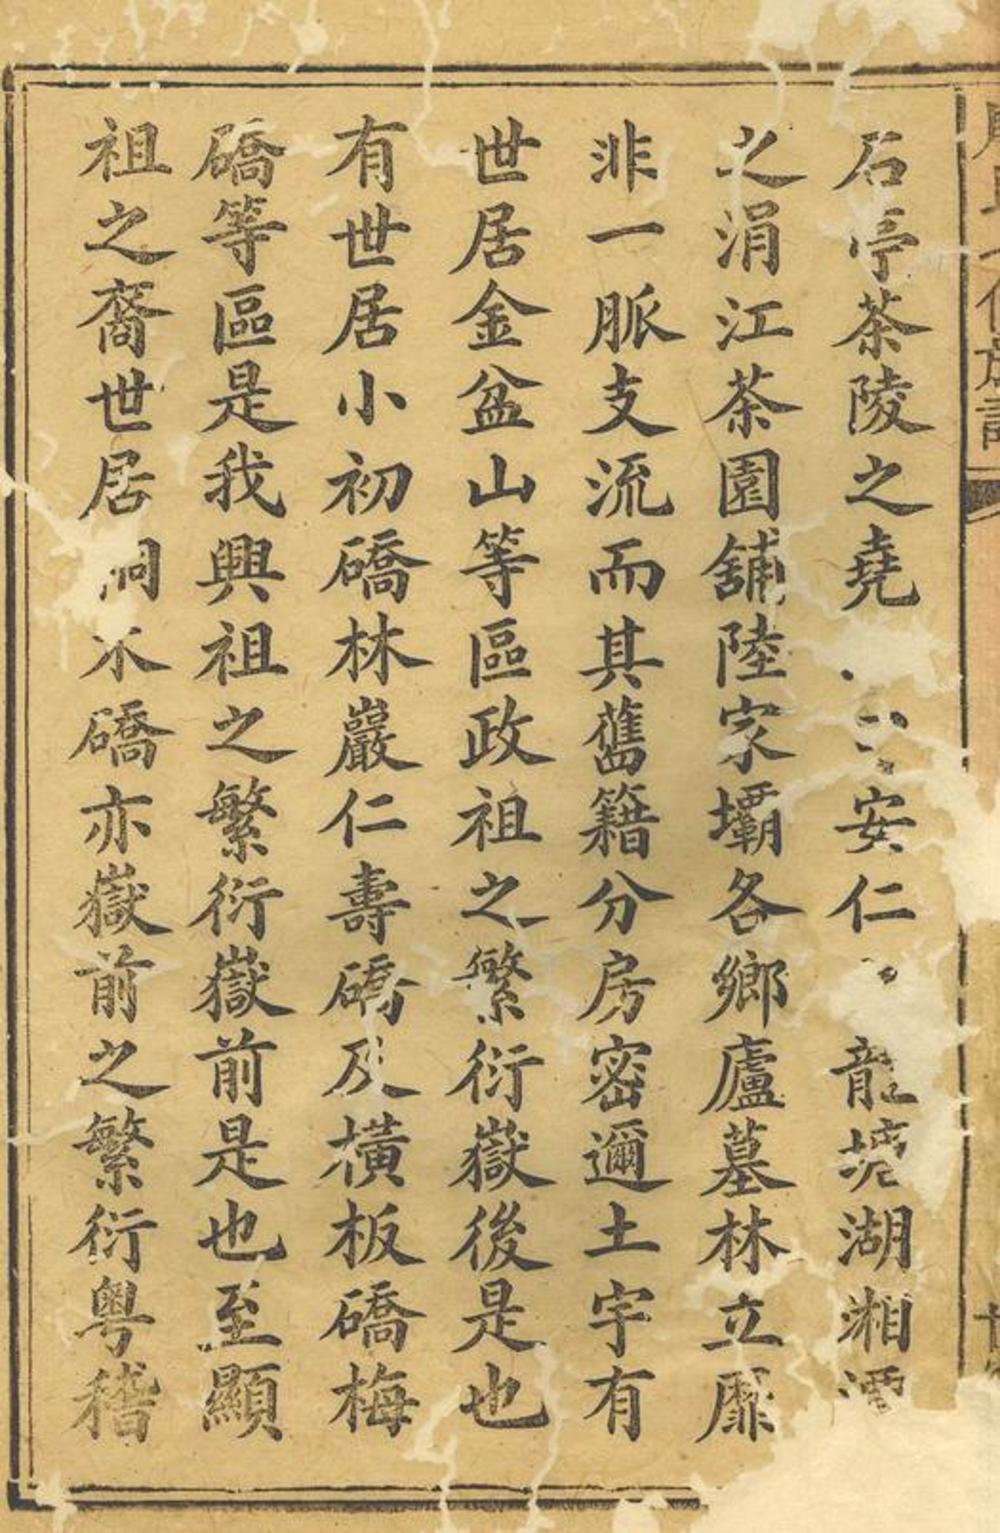 石亭茶陵之堯安仁龍塘湖湘潭
之涓江茶園舖陸家壩各鄉廬墓林立靡
非一脈支流而其舊籍分房密邇土宇有
世居金盆山等區政祖之繁衍嶽後是也
有世居小初礄林巖仁壽礄及橫板礄梅
礄等區是我興祖之繁衍嶽前是也至顯
祖之裔世居洞水礄亦嶽前之繁衍粵稽